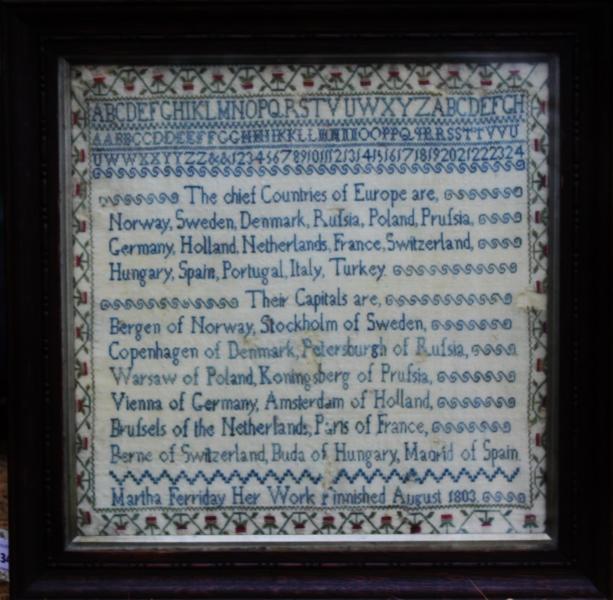 ABCDEFGHIKLMNOPQRSTVUWXYZABCDEFGH
AABBCCDDEEFFGGHHIIKKLLMMNNOOPPQqRRSSTTVVU
UWWXXYYZZ&&123456789101112131415161718192021222324
The chief Countries of Europe are,
Norway, Sweden, Denmark, Rufsia, Poland, Prufsia,
Germany, Holland, Netherlands, France, Switzerland,
Hungary, Spain, Portugal, Italy, Turkey.
Their Capitals are,
Bergen of Norway, Stockholm of Sweden,
Copenhagen of Denmark, Petersburgh of Rufsia,
Warsaw of Poland, Koningsberg of Prufsia,
Vienna of Germany, Amsterdam of Holland,
Brufsels of the Netherlands, Paris of France,
Berne of Switzerland, Buda of Hungary, Madrid of Spain.
Martha Ferriday Her Work Finnished August 1803